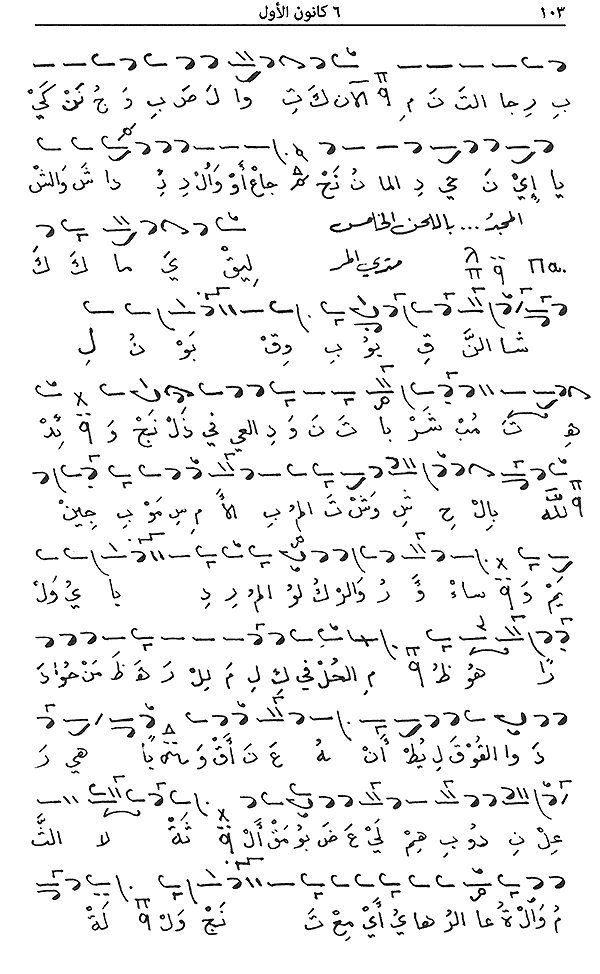 ١٠٣ ٦ كانون الأول
بِ رِ جا التَ نَ مِ الآن كَ تِ وا لَ صَ بِ وَ جُ نَنْ كَيْ
يا إِيْ نَ حي دِ الما نُ نَحْ جاعْ أَوْ وَالْ دِ داشَ وَالشْ
المجدُ ... باللحن الخامس
متري المر لِيقْ يَ ما كَ كَ
شا النَّ قِ بُوْ بِ وِقْ بَوْ نُ لِ
هِ تَ مُبْ شَرْ با تَ نَ وَ دِ العي في ذَلْ نَجْ وَ نِدْ
للَّه بِالْ حِ شِ وَشْ تَ المُ بِ الأَ مِ سِ مَوْ بِ جِينْ
يَمْ وَ ساءْ وَّ رُ وَالزْ كُ لو المُ رِ دِ با يُ وَلْ
زًا هُوْ ظُ مِ الحُلْ في كِ لِ مَ لِلْ رَ هَ ظَ مَنْ دَ
دَ وا القَوْ قَ لِ يُطْ أَنْ هُ عَ نَ أَقْ وَ بًا هي رَ
عِلْ نِ دُوْ بِ هِمْ لَيْ عَ ضَ بُوْ مَقْ أَلْ ثَةْ لا الثَّ
مُ وَالْ ةُ عا الرُ هايُ أَيْ مِعْ تَ نَجْ وَلْ لَةْ